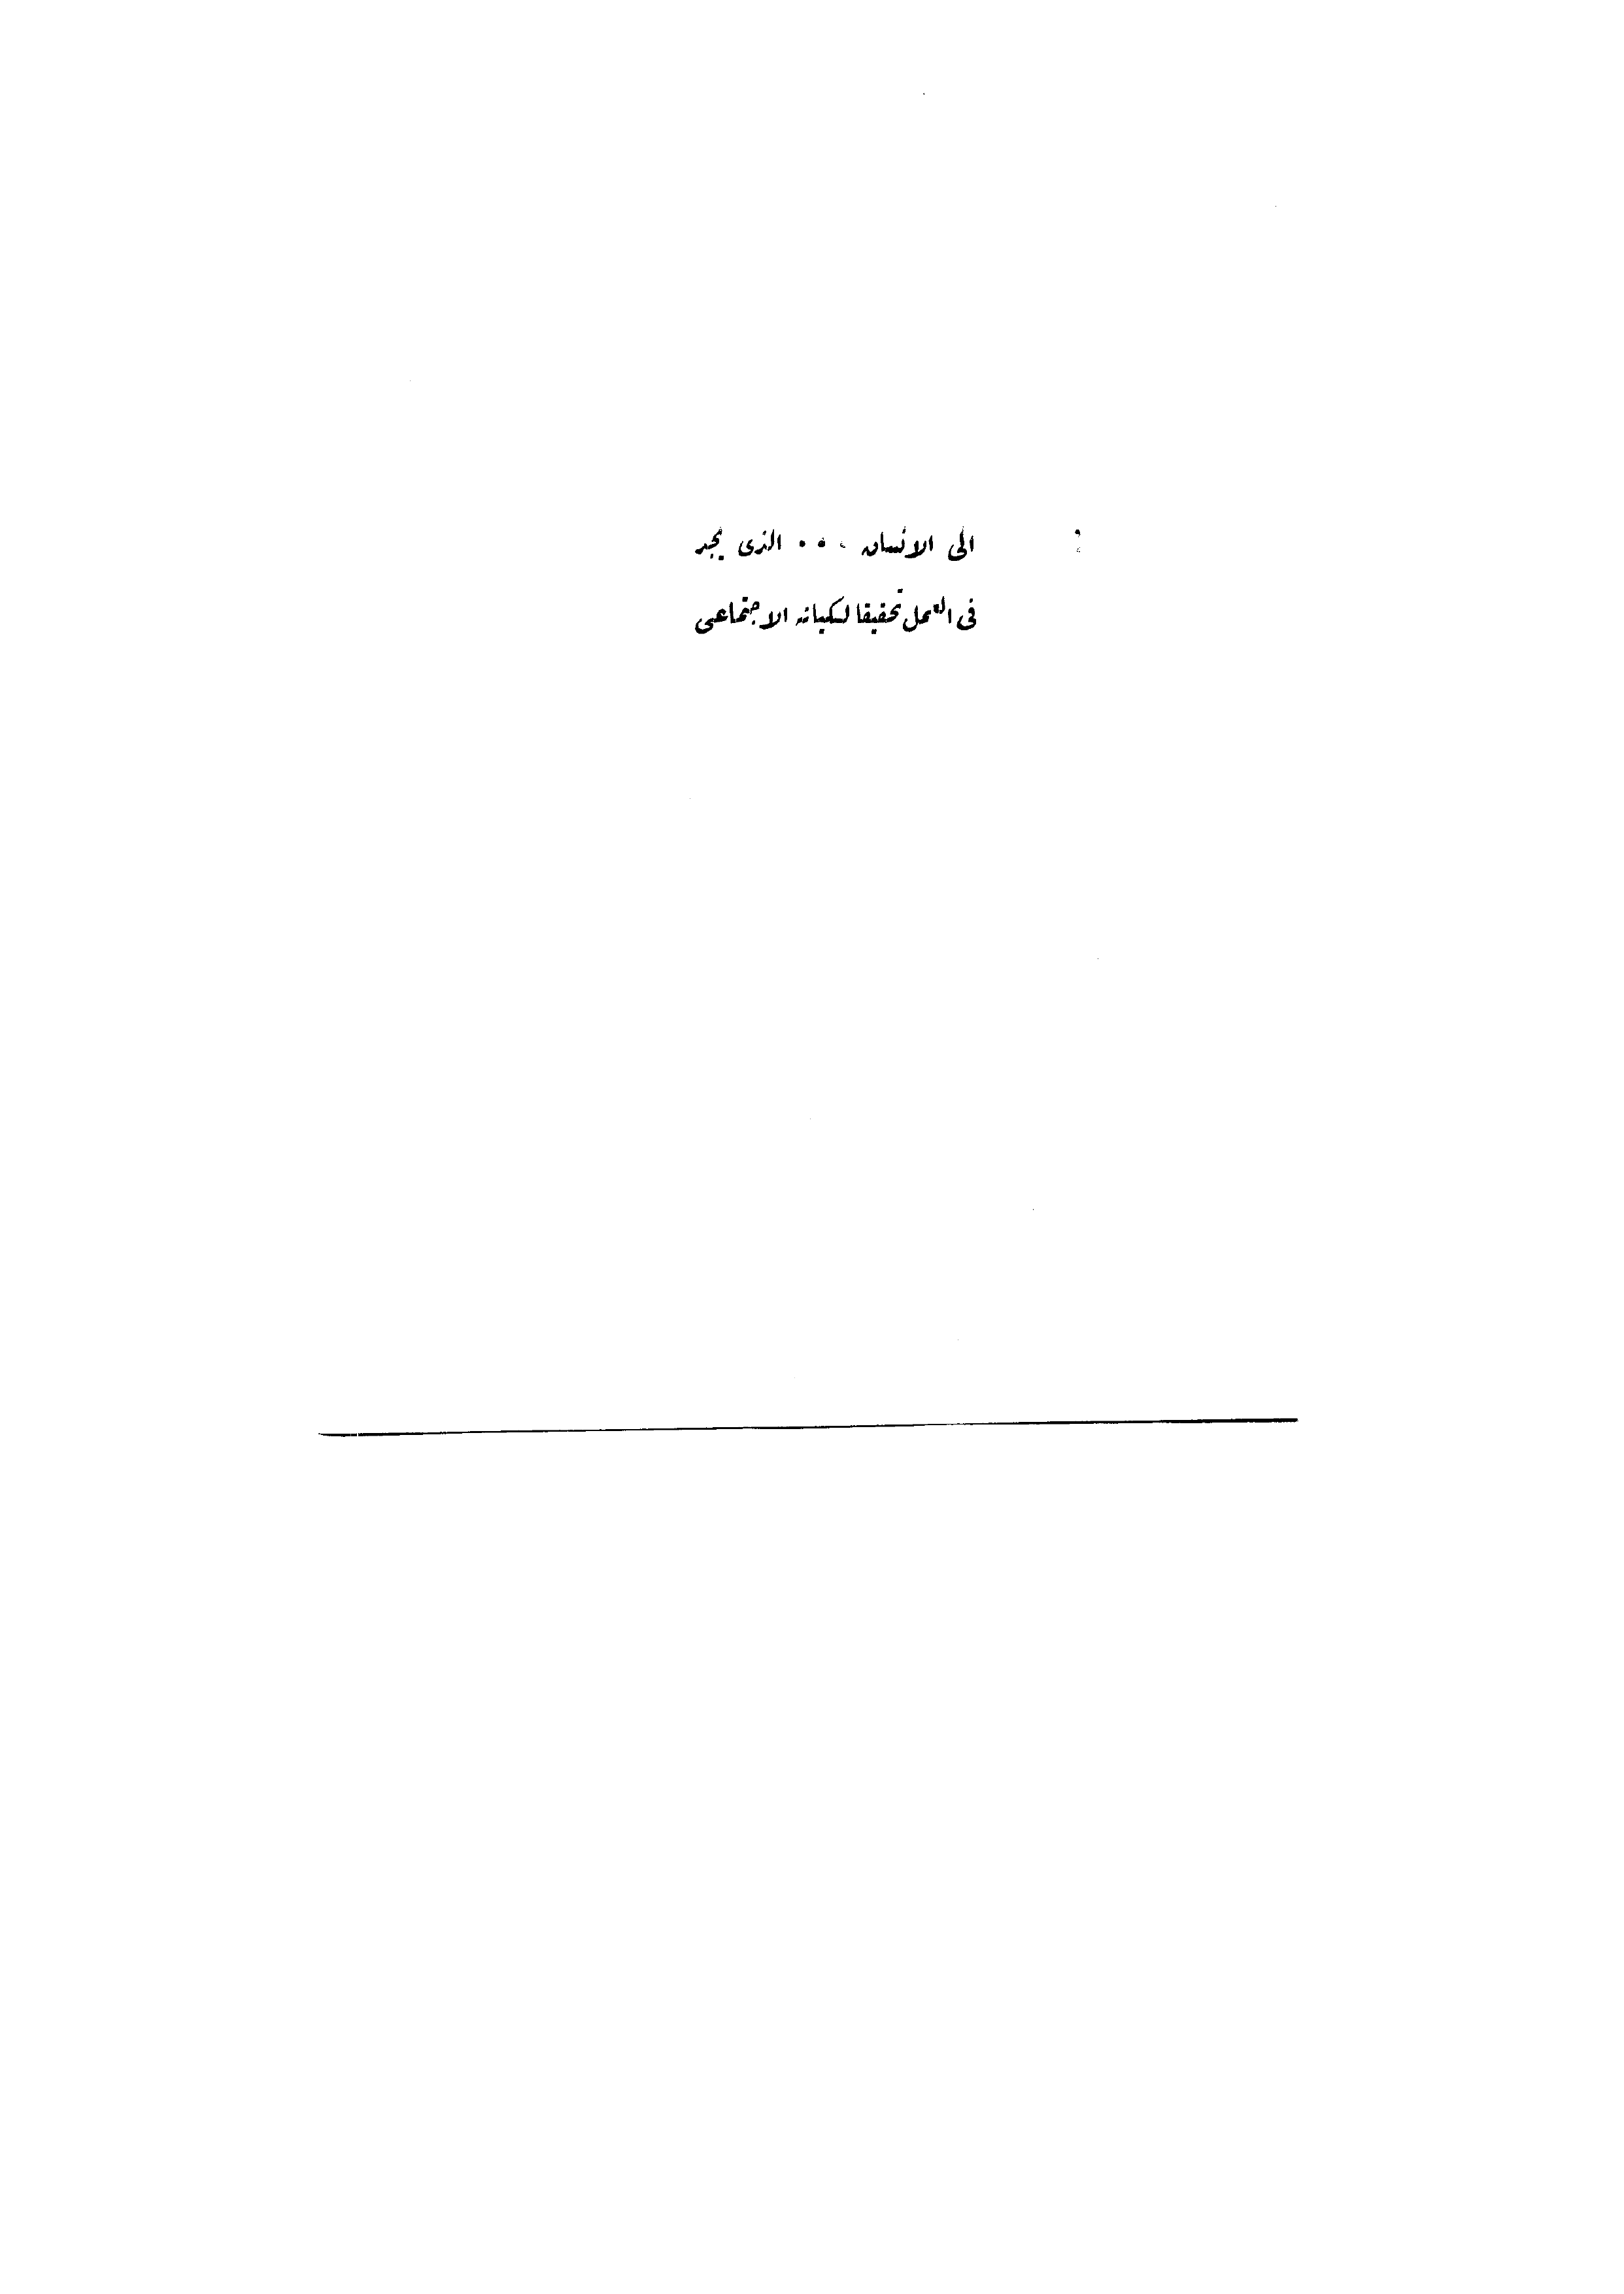 الى الانسان ٠٠٠ الذى يجد
فى العمل تحقيقا لكيانه الاجتماعى